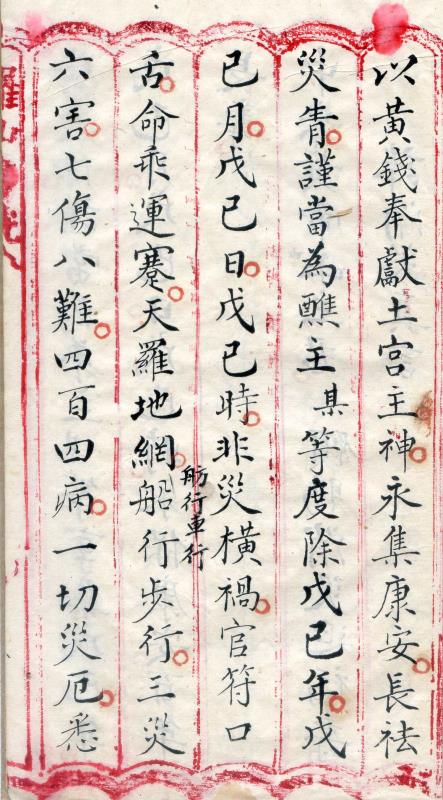 以黃錢奉獻土宮主神永集康安長祛
災眚謹當為醮主某等度除戊己年戊
己月戊己日戊己時非災橫禍官符口
舌命乖運蹇天羅地網船行步行三災
舫行車行
六害七傷八難四百四病一切災厄悉